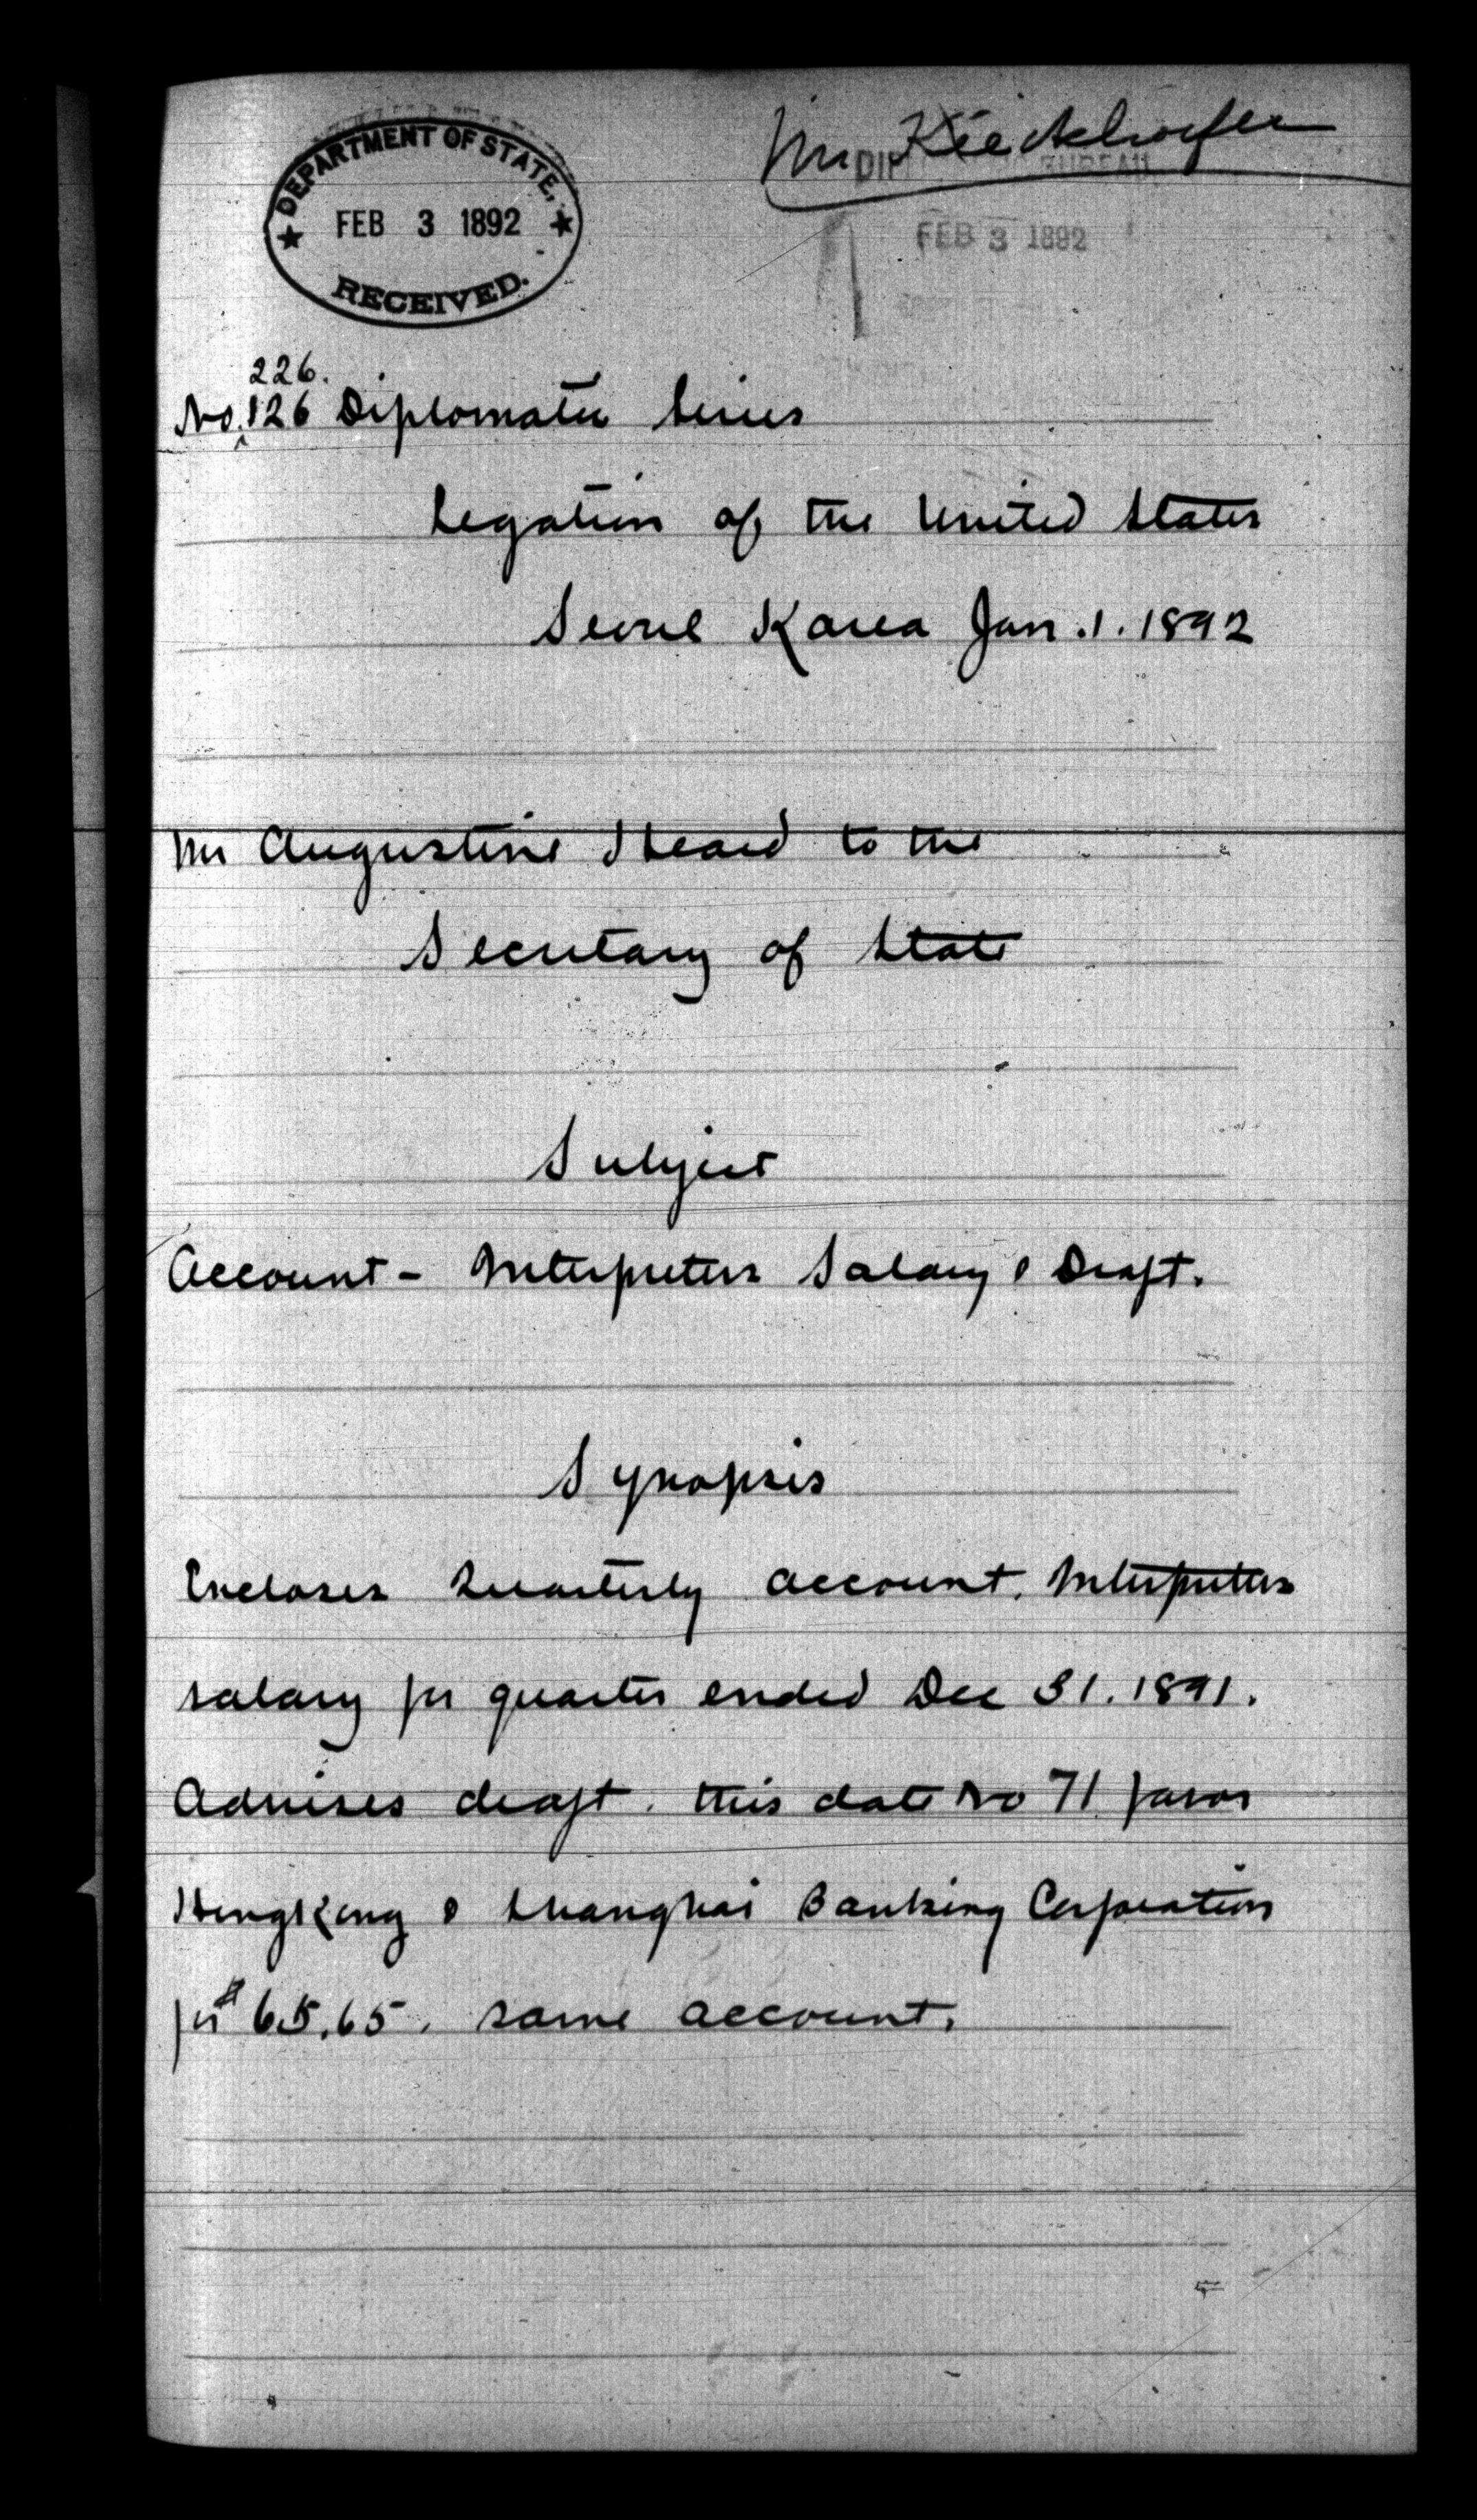 DEPARTMENT OF STATE,
FEB 3 1892
RECEIVED.
Mr Kieckhoefer
BUREAU
FEB 3 1892
226.
No. 126 Diplomatic Series
Legation of the United States
Seoul Korea Jan. 1. 1892
Mr Augustine Heard to the
Secretary of State
Subject
Account - Interpreters Salary & Draft.
Synopsis
Encloses Quarterly account. Interpreters
salary for quarter ended Dec 31. 1891.
Advises draft. this date No 71 favor
HongKong & Shanghai Banking Corporation
for $65.65. same account.